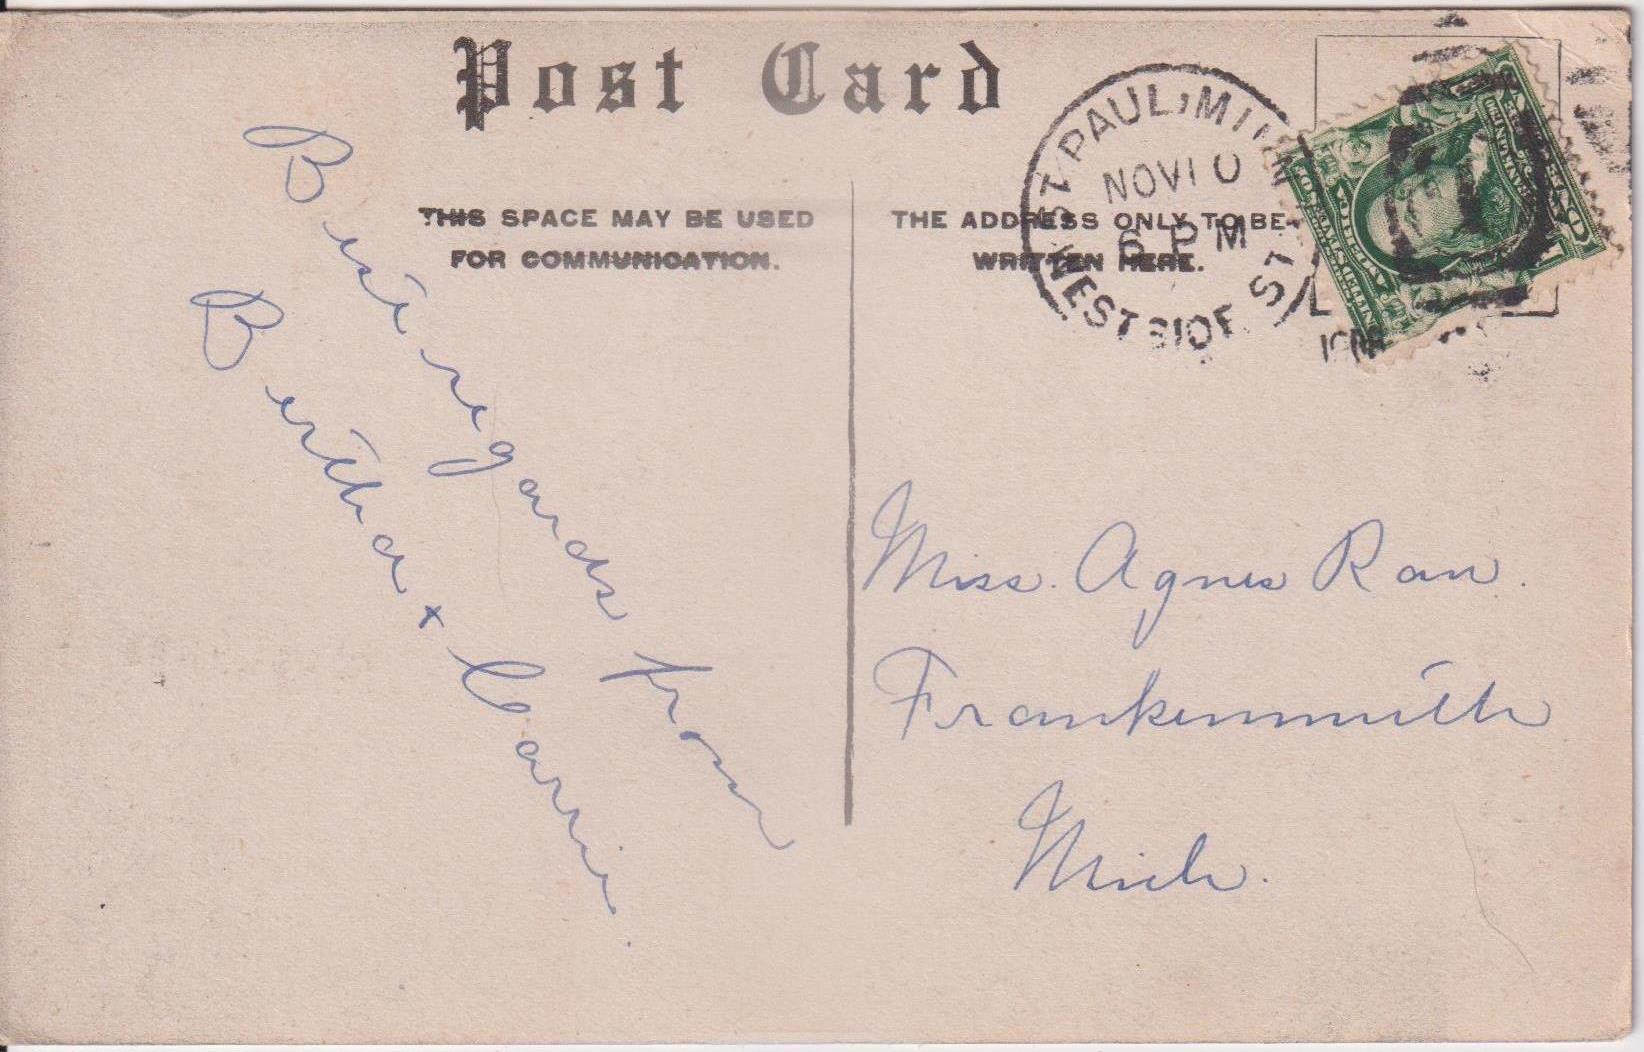 Post Card
THIS SPACE MAY BE USED
FOR COMMUNICATION.
THE ADDRESS ONLY TO BE
WRITTEN HERE.
ST PAUL, MINN
NOV 10
6 PM
WEST SIDE ST
Best regards from
Bertha + Carrie.
Miss. Agnes Rau.
Frankenmuth
Mich.